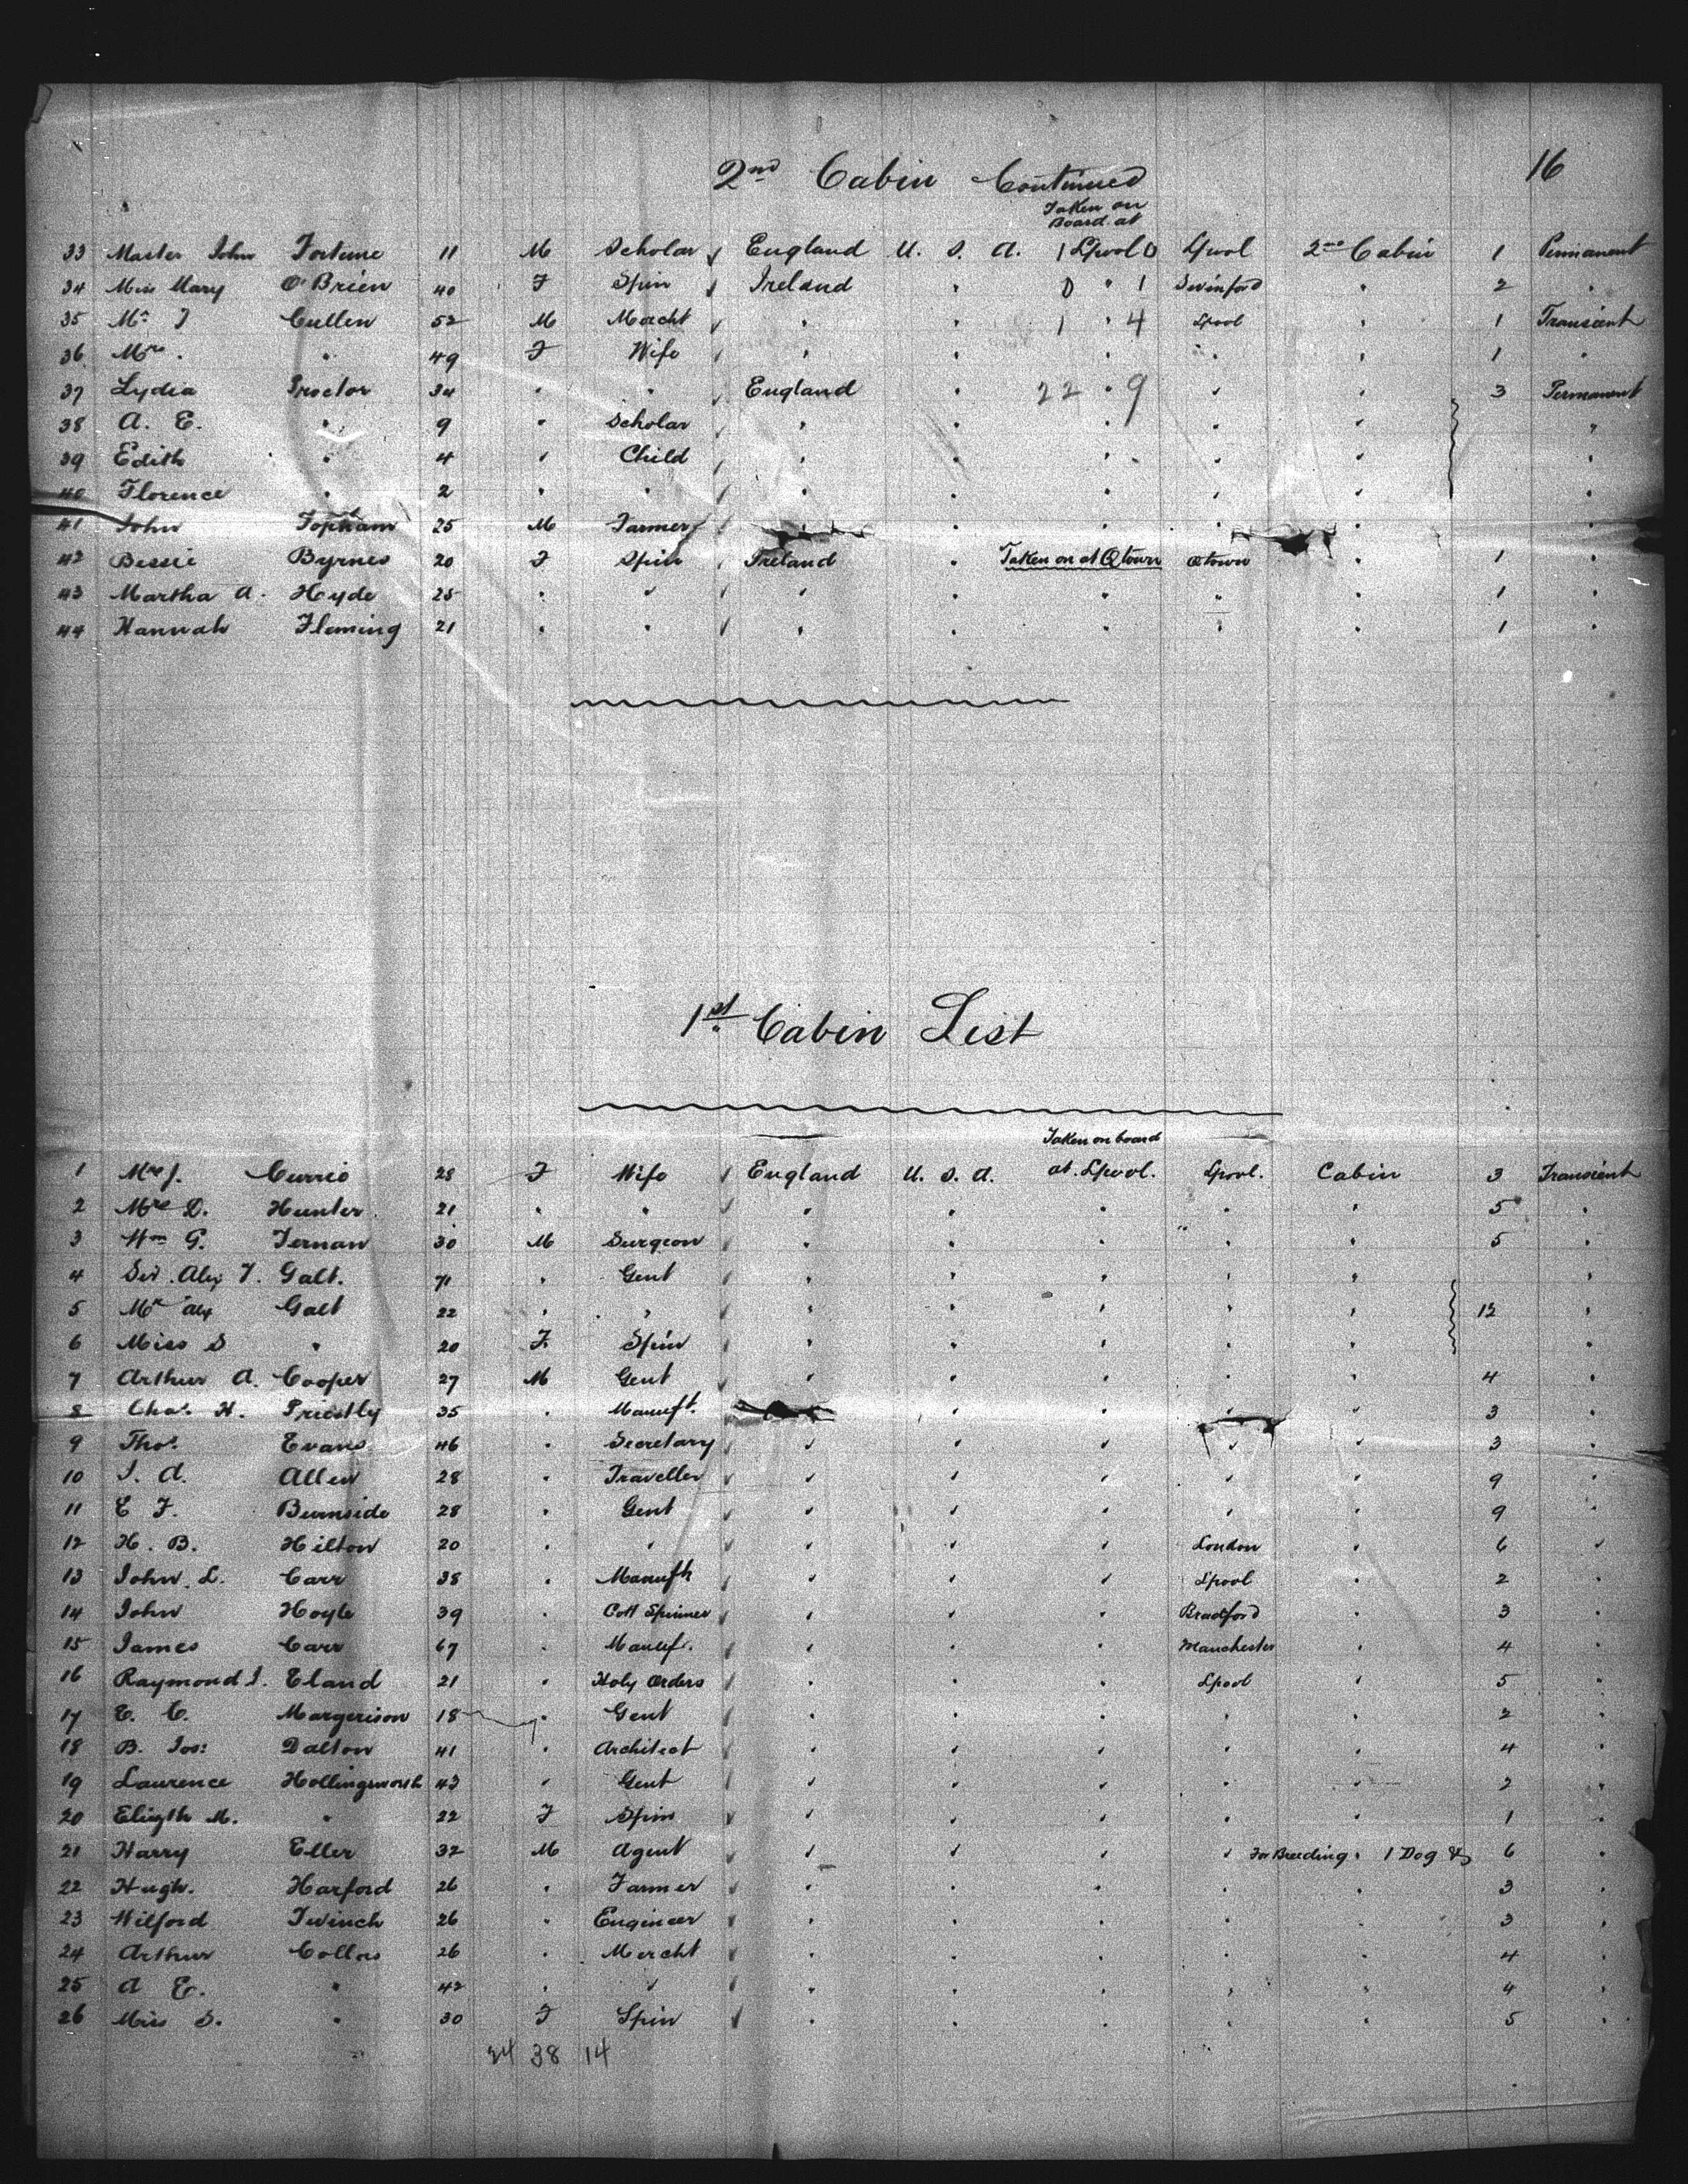 2nd Cabin Continued 16
Taken on
Board at
33 Master John Fortune 11 M Scholar England U. S. A. 1 Lpool 0 Lpool 2nd Cabin 1 Permanent
34 Miss Mary O'Brien 40 F Spin Ireland " 0 " 1 Swinford " 2 "
35 Mr J Cullen 52 M Mercht " " 1 " 4 Lpool " 1 Transient
36 Mrs. " 49 F Wife " " " " " 1 "
37 Lydia Proctor 34 " " England " 22 " 9 " " 3 Permanent
38 A. E. " 9 " Scholar " " " " " "
39 Edith " 4 " Child " " " " " "
40 Florence " 2 " " " " " " " "
41 John Topham 25 M Farmer " " " " "
42 Bessie Byrnes 20 F Spin Ireland " Taken on at Qtown Qtown " 1 "
43 Martha A. Hyde 25 " " " " " " " 1 "
44 Hannah Fleming 21 " " " " " " " 1 "
1st Cabin List
Taken on board
1 Mrs J. Currie 28 F Wife England U. S. A. at Lpool. Lpool. Cabin 3 Transient
2 Mrs D. Hunter 21 " " " " " " " 5 "
3 Wm G. Ternan 30 M Surgeon " " " " " 5 "
4 Sir Alex T. Galt. 71 " Gent " " " " " "
5 Mr Alex Galt 22 " " " " " " " 12 "
6 Miss S " 20 F. Spin " " " " " "
7 Arthur A. Cooper 27 M Gent " " " " " 4 "
8 Chas. H. Priestly 35 " Manuft. " " " " 3 "
9 Thos. Evans 46 " Secretary " " " " " 3 "
10 J. A. Allen 28 " Traveller " " " " " 9 "
11 E F. Burnside 28 " Gent " " " " " 9 "
12 H. B. Hilton 20 " " " " " London " 6 "
13 John L. Carr 38 " Manuft " " " Lpool " 2 "
14 John Hoyle 39 " Cott Spinner " " " Bradford " 3 "
15 James Carr 67 " Manuf. " " " Manchester " 4 "
16 Raymond J. Eland 21 " Holy Orders " " " Lpool " 5 "
17 E. C. Margerison 18 " Gent " " " " " 2 "
18 B. Jos: Dalton 41 " Architect " " " " " 4 "
19 Laurence Hollingsworth 43 " Gent " " " " " 2 "
20 Elizth M. " 22 F Spin " " " " " 1 "
21 Harry Eller 32 M Agent " " " " For Breeding " 1 Dog & 6 "
22 Hugh. Harford 26 " Farmer " " " " " 3 "
23 Wilford Twinch 26 " Engineer " " " " " 3 "
24 Arthur Collos 26 " Mercht " " " " " 4 "
25 A E. " 42 " " " " " " " 4 "
26 Miss S. " 30 F Spin " " " " " 5 "
24 38 14